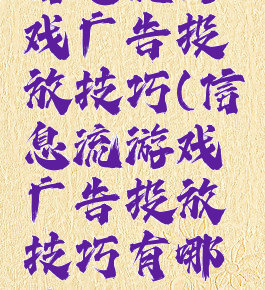 戏广告投
放技巧(信
息流游戏
广告投放
技巧有哪